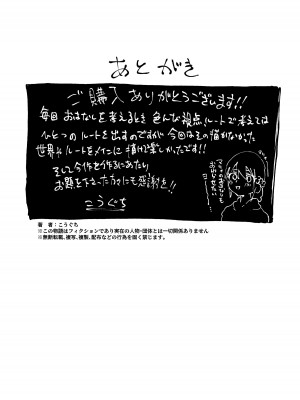 あとがき
ご購入ありがとうございます!!
毎回おはなしを考えるとき色んな視点、ルートで考えては
ひとつのルートを出すのですが今回はその描かなかった
世界やルートをメインに描けて楽しかったです!!
そして今作を作るにあたり
お題を下さった方々にも感謝を!!
こうぐち
著　者：こうぐち
※この物語はフィクションであり実在の人物・団体とは一切関係ありません
※無断転載、複写、複製、配布などの行為を固く禁じます。